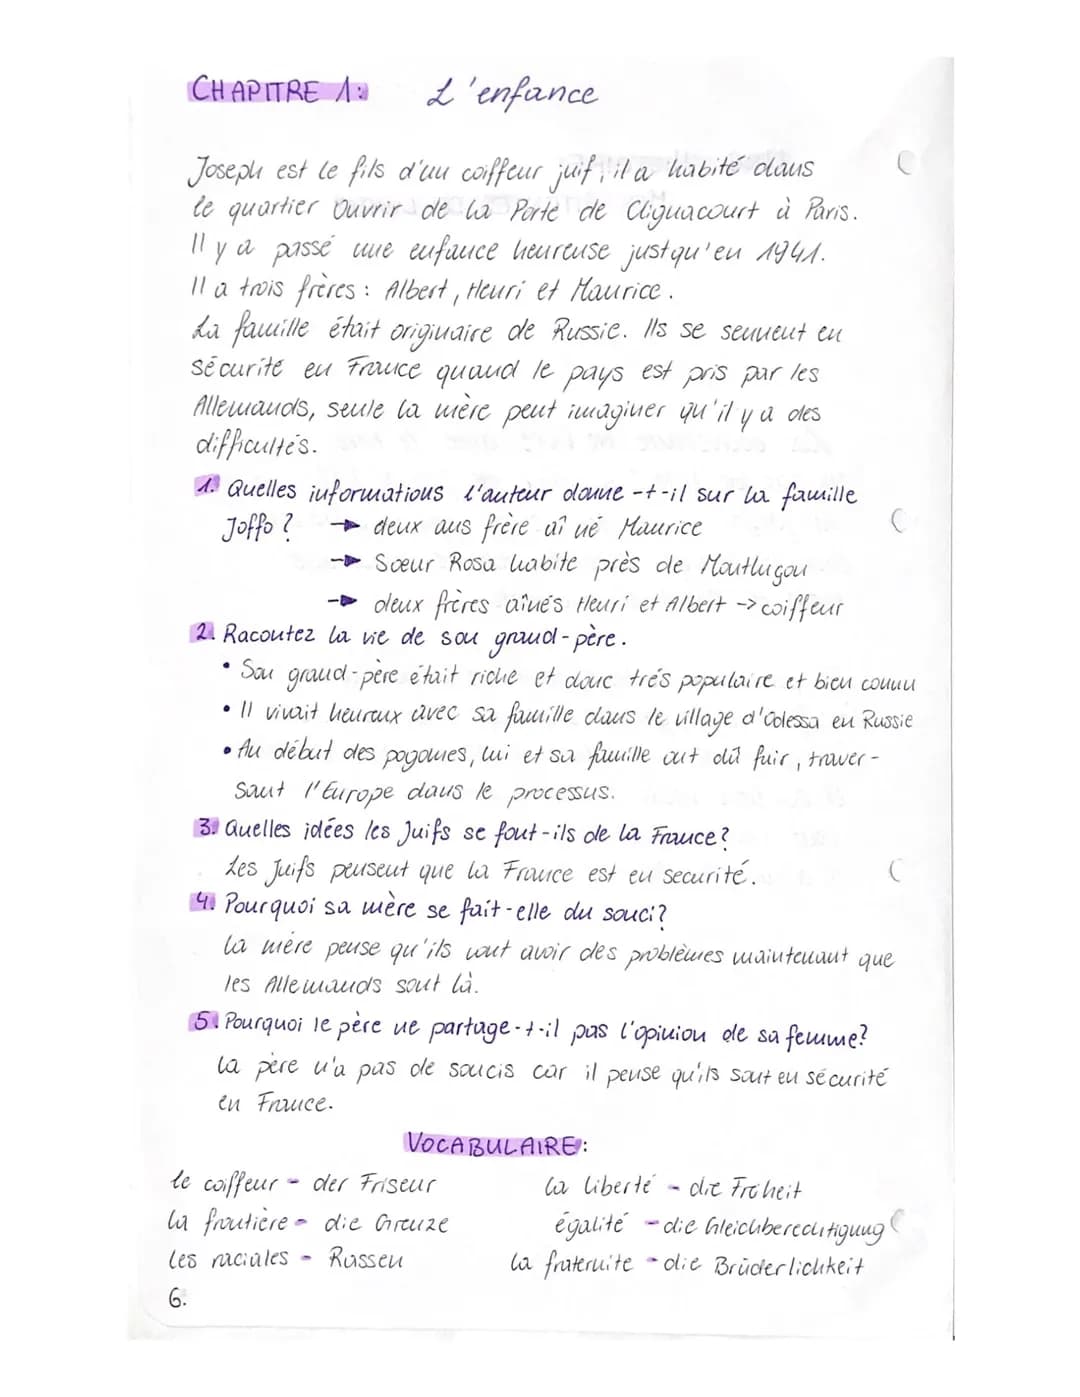 CHAPITRE 1: L'enfance
Joseph est le fils d'un coiffeur juif, il a habité dans
le quartier Ouvrir de la Porte de Cliguacourt à Paris.
Il y a passé une enfance heureuse justqu'en 1941.
Il a trois frères : Albert, Henri et Maurice.
La famille était originaire de Russie. Ils se sennent en
sécurité en France quand le pays est pris par les
Allemands, seule la mère peut imaginer qu'il y a des
difficultés.
1. Quelles informations l'auteur donne-t-il sur la famille
Joffo ? → deux ans frère aîné Maurice
→ Sœur Rosa habite près de Montlugon
→ deux frères aînés Henri et Albert -> coiffeur
2. Racontez la vie de son grand-père.
• Son grand-père était riche et donc trés populaire et bien connu
• Il vivait heureux avec sa famille dans le village d'Odessa en Russie
• Au début des pogomes, lui et sa famille ont dû fuir, traver-
sant l'Europe dans le processus.
3. Quelles idées les Juifs se font-ils de la France?
Les Juifs pensent que la France est en securité.
4. Pourquoi sa mère se fait-elle du souci?
la mère pense qu'ils vont avoir des problèmes maintenant que
les Allemands sont là.
5. Pourquoi le père ne partage-t-il pas l'opinion de sa femme?
la père n'a pas de soucis car il pense qu'ils sont en sécurité
en France.
VOCABULAIRE:
le coiffeur - der Friseur
la liberté - die Freiheit
la frontière - die Grenze
égalité - die Gleichberechtigung
les raciales - Rassen
la fraternite - die Brüderlichkeit
6.